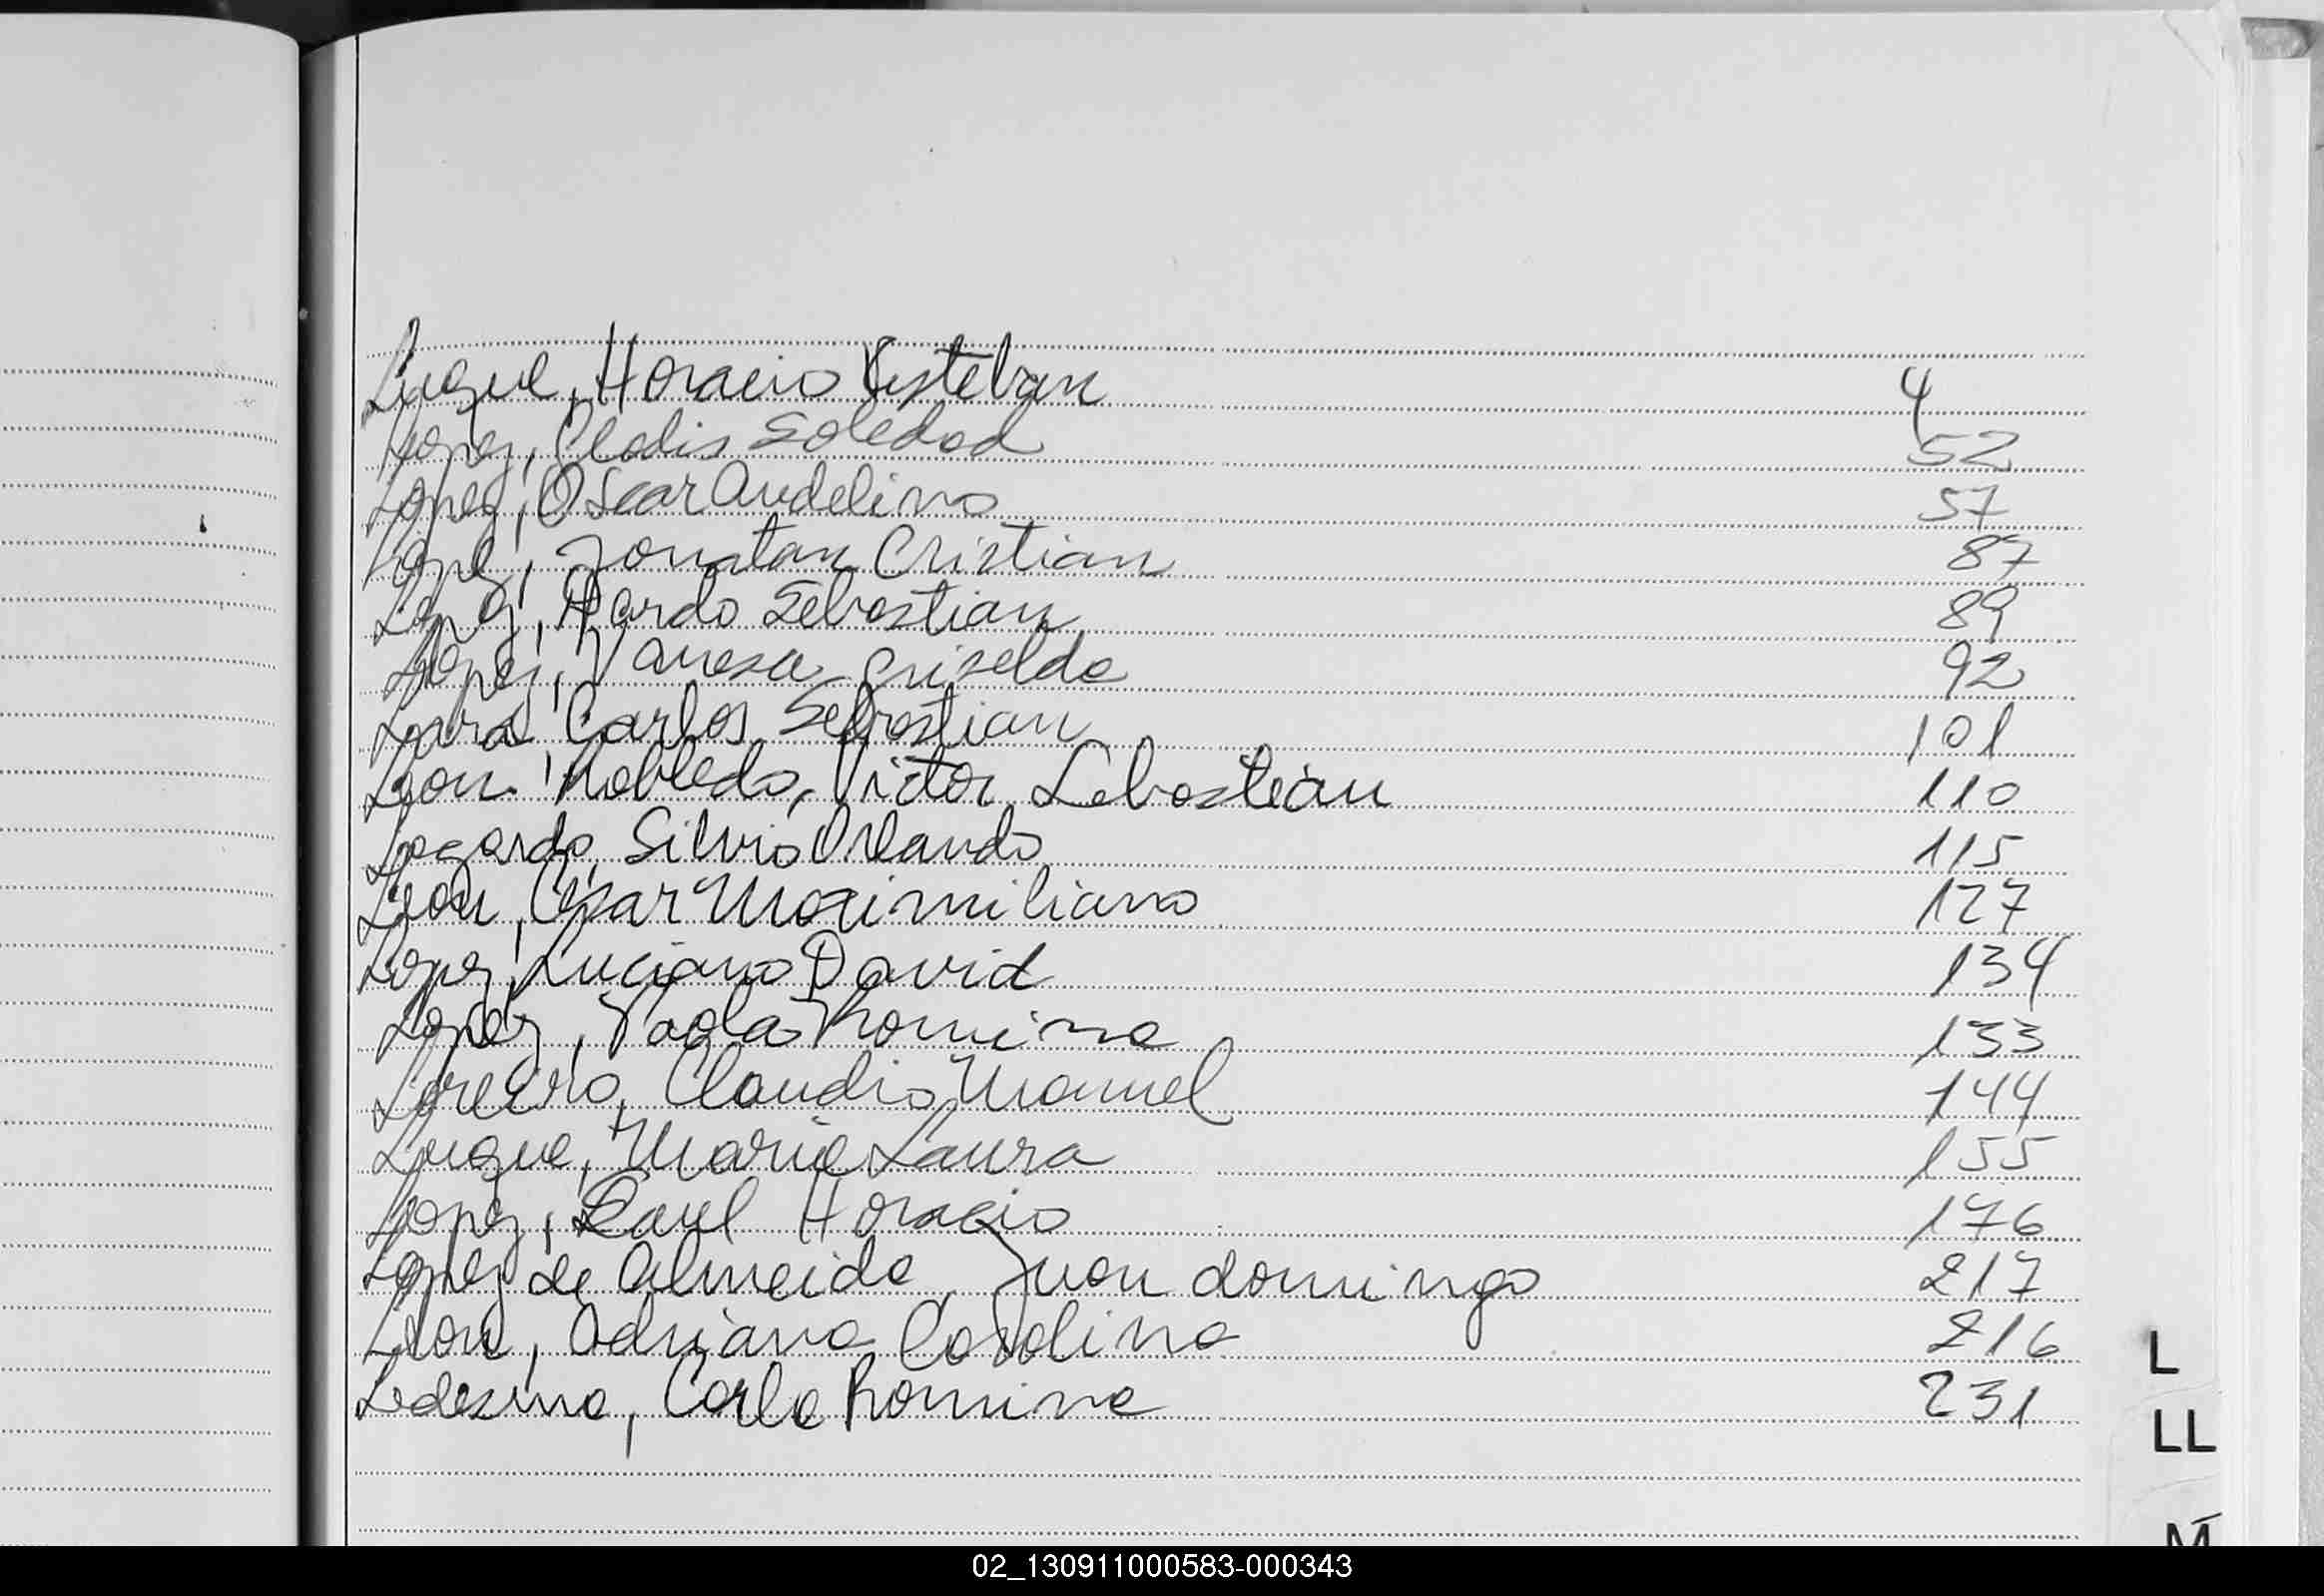 Luque, Horacio Esteban 4
Lopez, Cladis Soledad 52
Lopez, Oscar Audelino 57
Lopez, Jonatan Cristian 87
Lopez, Pardo Sebastian 89
Lopez, Vanesa Griselda 92
Lara, Carlos Sebastian 101
Leon Robledo, Victor Sebastián 110
Logardo, Silvio Orlando 115
Leon, Cesar Maximiliano 127
Lopez, Luciano David 134
Lopez, Paola Romina 133
Loreiro, Claudio Manuel 144
Luque, Maria Laura 155
Lopez, Raul Horacio 176
Lopez de Almeida, Juan domingo 217
Leon, Adriana Carolina 216
Ledesma, Carla Romina 231
L
LL
M
02_130911000583-000343